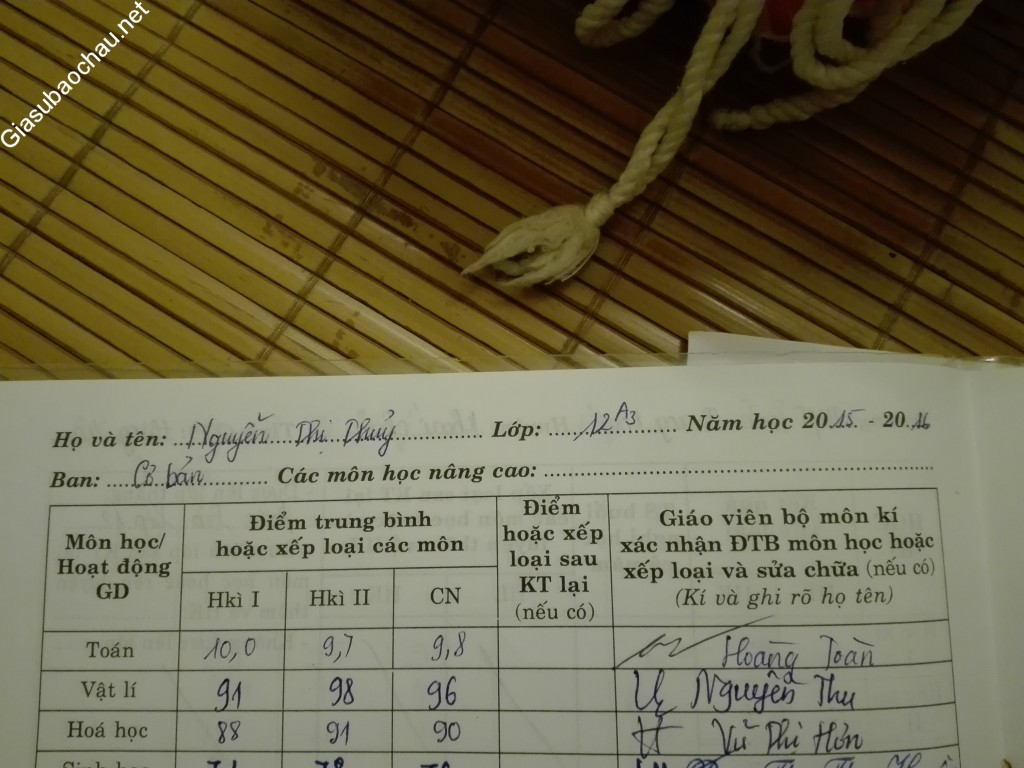 Giasubaochau.net
Họ và tên: Nguyễn Thị Thuỷ Lớp: 12A3 Năm học 2015 - 2016
Ban: Cơ bản Các môn học nâng cao:
Môn học/ Hoạt động GD
Điểm trung bình hoặc xếp loại các môn
Hkì I Hkì II CN
Điểm hoặc xếp loại sau KT lại (nếu có)
Giáo viên bộ môn kí xác nhận ĐTB môn học hoặc xếp loại và sửa chữa (nếu có) (Kí và ghi rõ họ tên)
Toán 10,0 9,7 9,8 Hoàng Toàn
Vật lí 91 98 96 Nguyễn Thu
Hoá học 88 91 90 Vũ Thị